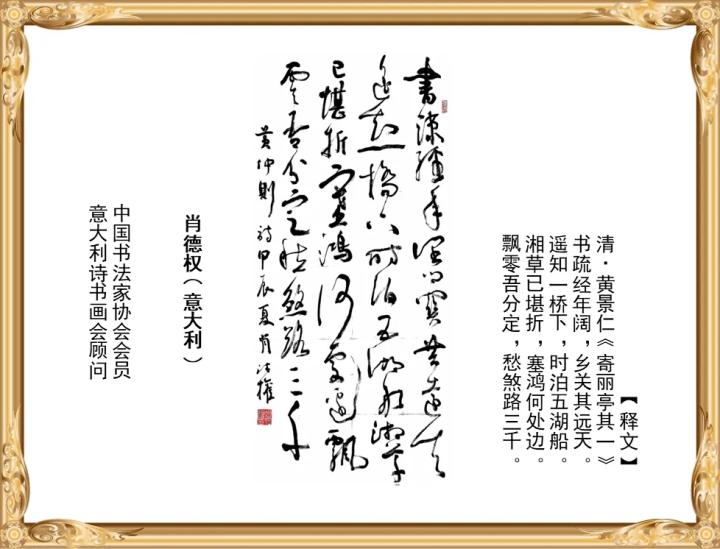 【释文】
清·黄景仁《寄丽亭其一》
书疏经年阔，乡关其远天。
遥知一桥下，时泊五湖船。
湘草已堪折，塞鸿何处边。
飘零吾分定，愁煞路三千。
書疎經年闊關共遠天
遥知一橋下時泊五湖船湘草
已堪折塞鴻何處邊飄
零吾分定愁煞路三千
黄仲則詩甲辰夏肖德權
肖德权（意大利）
中国书法家协会会员
意大利诗书画会顾问